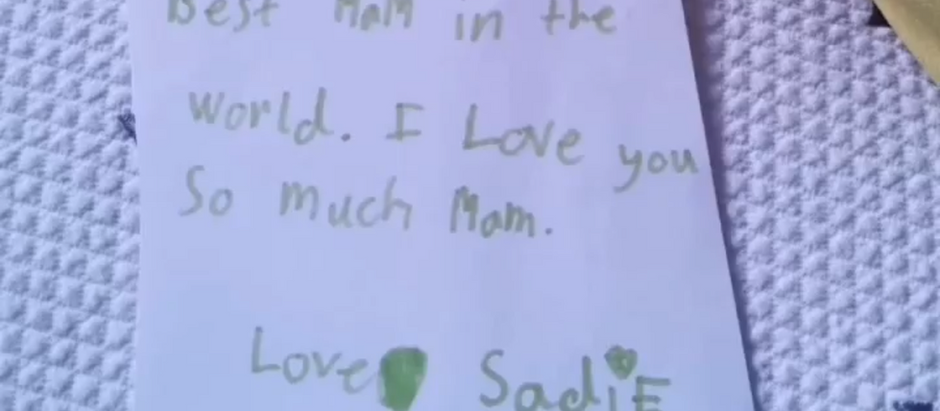 Best Mam in the
world. I Love you
So much Mam.
Love Sadie